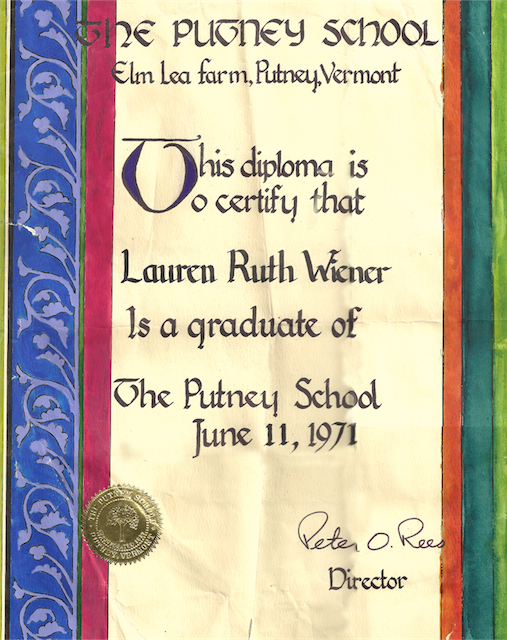 THE PUTNEY SCHOOL
Elm Lea farm, Putney, Vermont
This diploma is
To certify that
Lauren Ruth Wiener
Is a graduate of
The Putney School
June 11, 1971
THE PUTNEY SCHOOL
PUTNEY, VERMONT
Peter O. Rees
Director